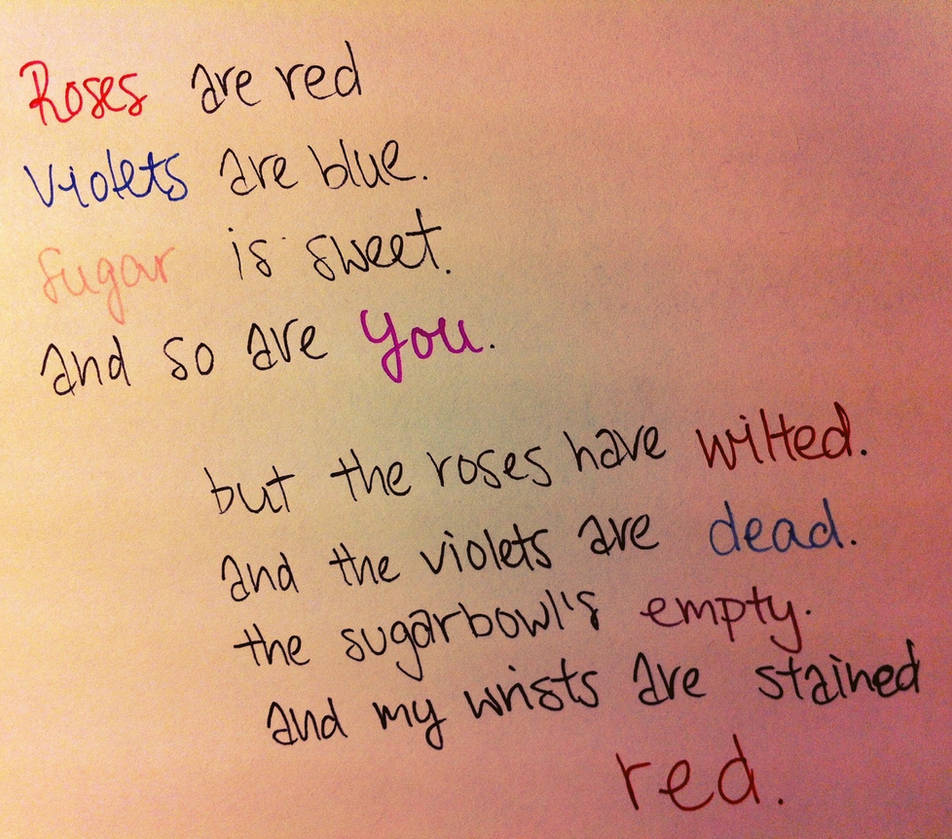 Roses are red
Violets are blue.
Sugar is sweet.
and so are you.
but the roses have wilted.
and the violets are dead.
the sugarbowl's empty.
and my wrists are stained
red.